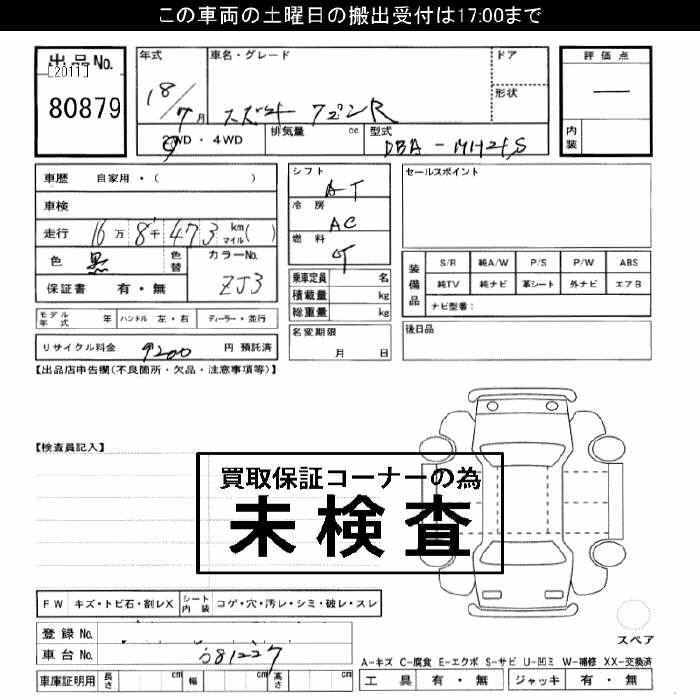 この車両の土曜日の搬出受付は17:00まで
出品No.
[2011]
80879
年式
18/7月
車名・グレード
スズキ ワゴンR
ドア
形状
2WD・4WD
排気量 cc
型式
DBA-MH21S
評価点
―
内装
車歴 自家用・( )
車検
走行 16万8千473 km マイル( )
色 黒
色替
カラーNo.
ZJ3
保証書 有・無
モデル年式 年
ハンドル 左・右
ディーラー・並行
リサイクル料金 9200 円 預託済
シフト
AT
冷房
AC
燃料
乗車定員 名
積載量 kg
総重量 kg
名変期限
月 日
セールスポイント
装備品
S/R 純A/W P/S P/W ABS
純TV 純ナビ 革シート 外ナビ エアB
ナビ型番：
後日品
【出品店申告欄(不良箇所・欠品・注意事項等)】
【検査員記入】
買取保証コーナーの為
未検査
FW キズ・トビ石・割レX
シート内装 コゲ・穴・汚レ・シミ・破レ・スレ
登録No.
車台No. 681227
車庫証明用 長さ cm 幅 cm 高さ cm
スペア
A-キズ C-腐食 E-エクボ S-サビ U-凹ミ W-補修 XX-交換済
工具 有・無 ジャッキ 有・無